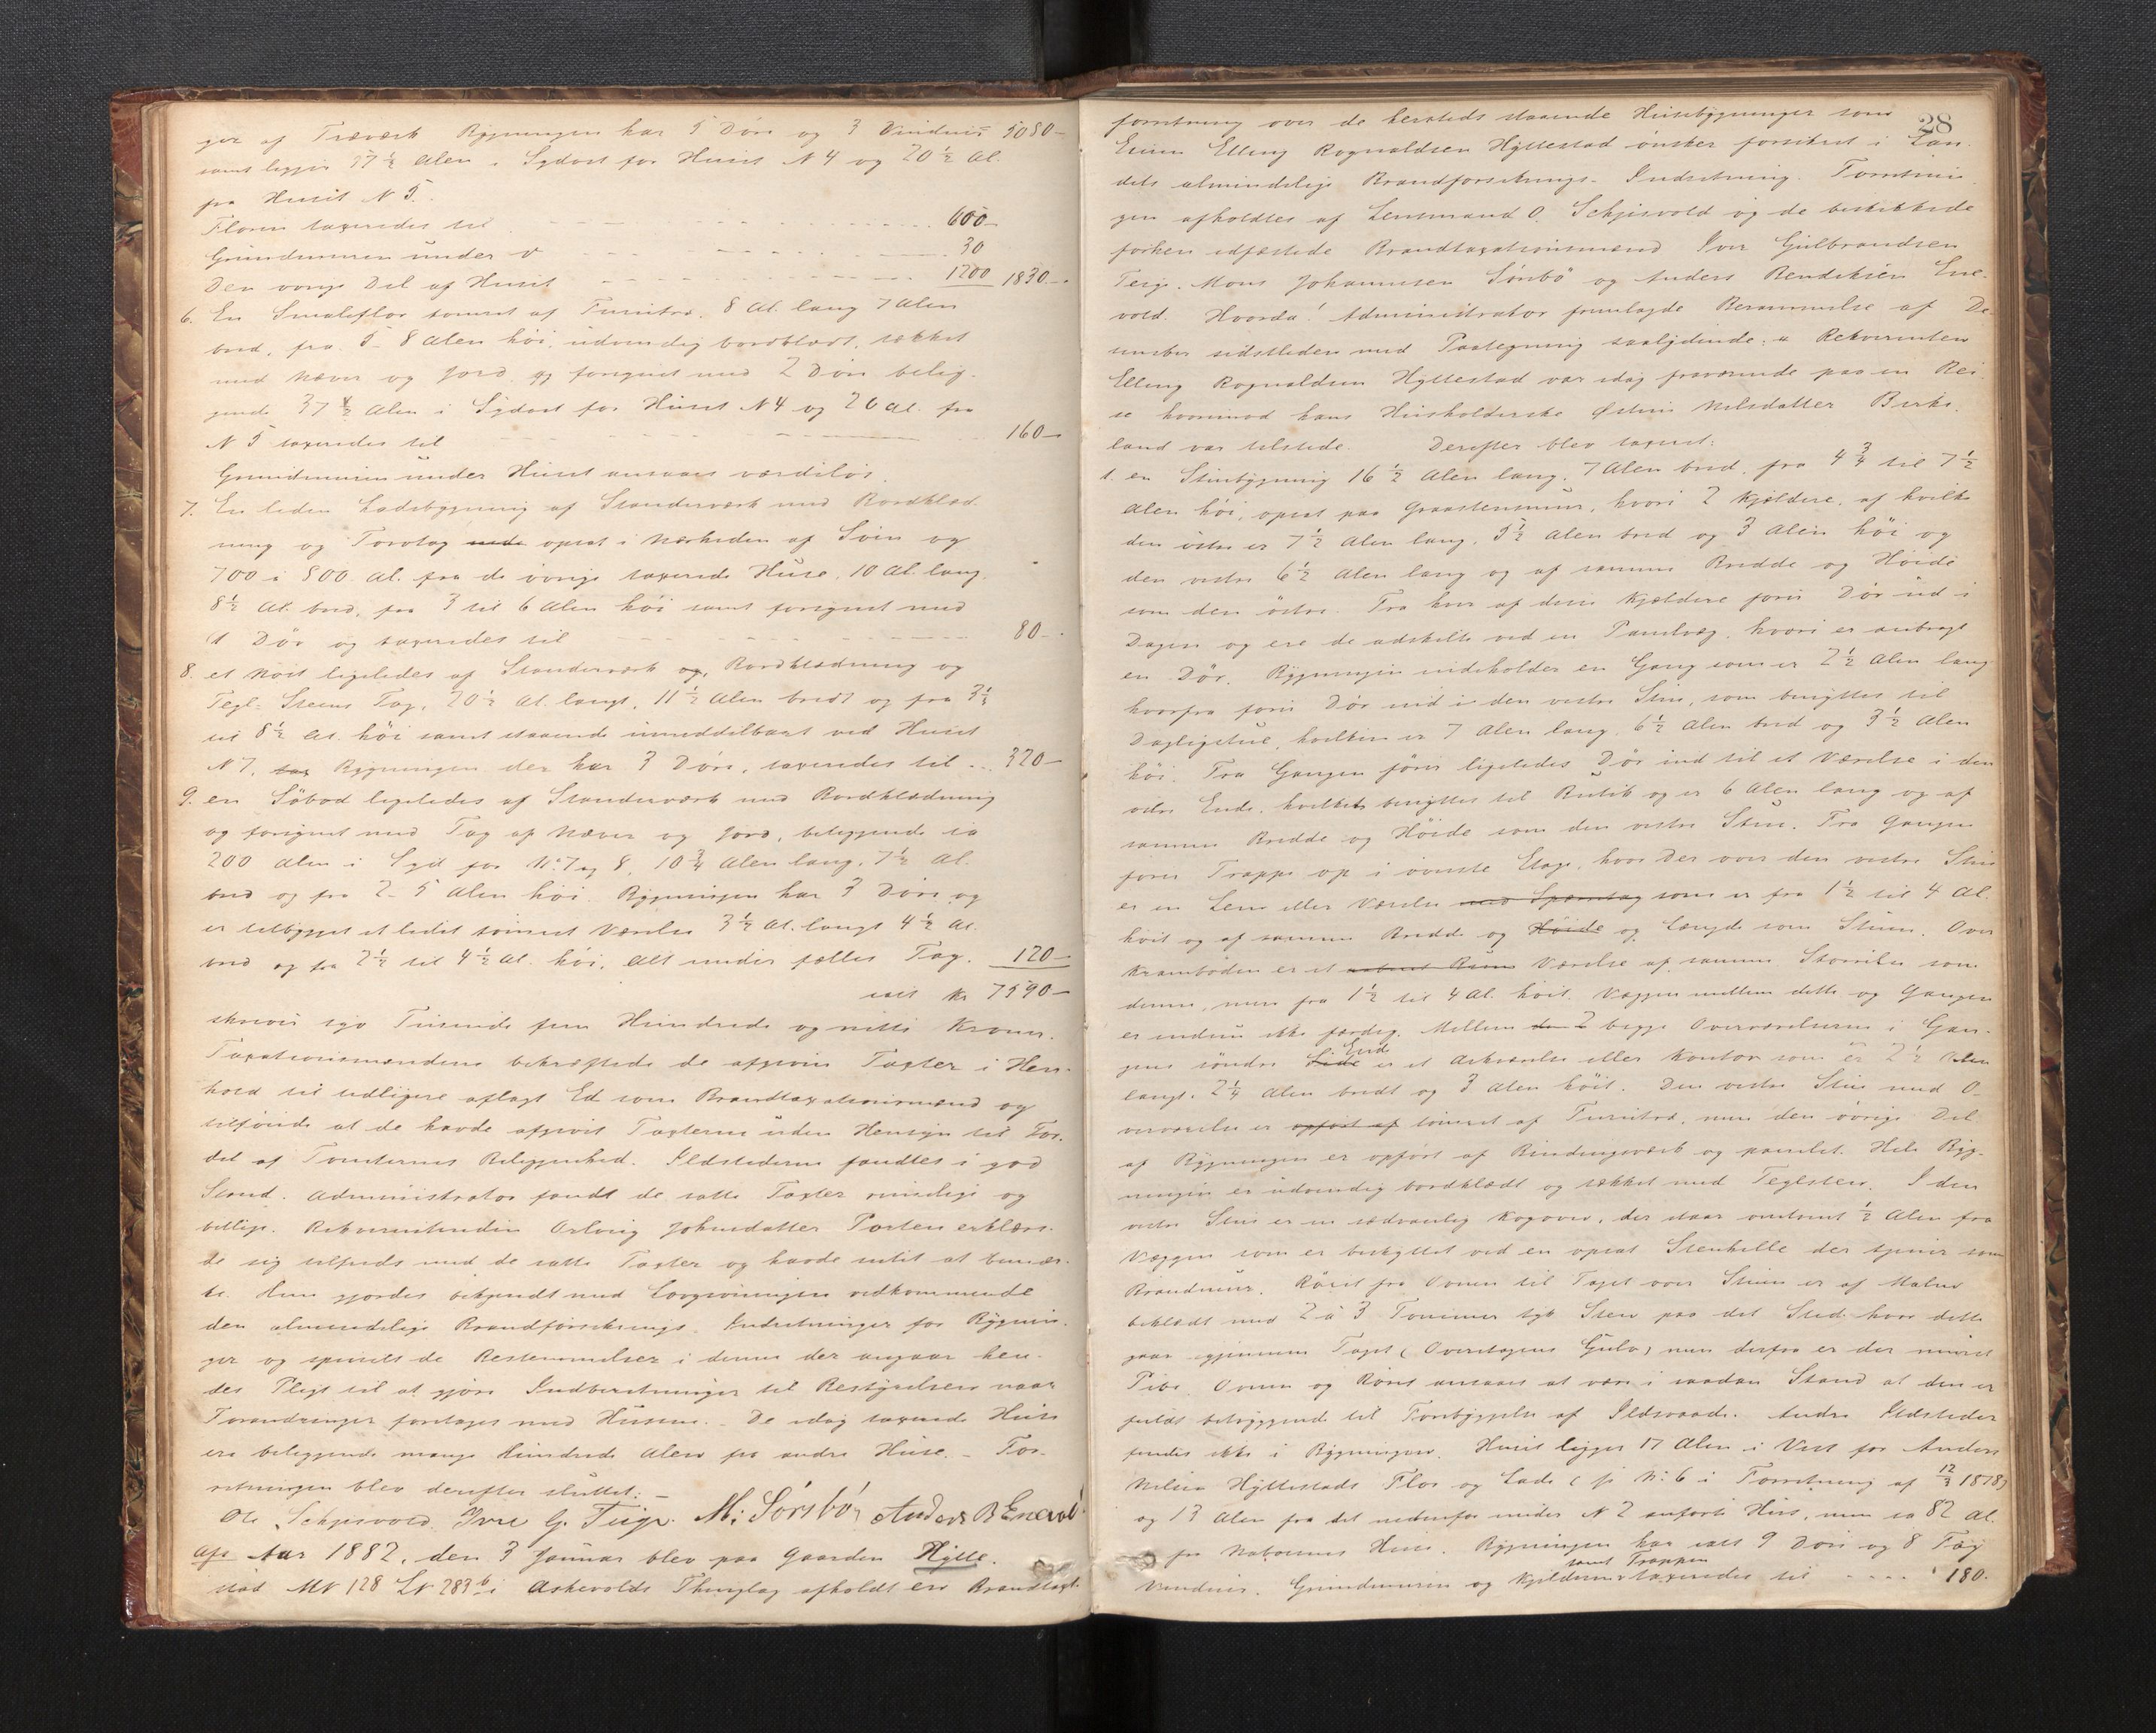 ger af Træværk Bygningen har 5 Döre og 3 Vinduer 5080–
samt ligger 37 1/2 Alen i Sydost for Huset N 4 og 20 1/2 Al.
fra Huset N 5.
Floren taxeredes til 600–
Grundmuren under d 30
Den övrige Del af Huset 1200 1830–
6. En Smaleflor tömret af Furutræ, 8 Al. lang 7 Alen
bred, fra 5–8 Alen höi, udvendig bordklædt, tækket
med Næver og Jord og forsynet med 2 Döre belig-
gende 37 1/2 Alen i Sydost for Huset N 4 og 26 Al. fra
N 5 taxeredes til 160–
Grundmuren under Huset ansaaes værdilös.
7. En liden Ladebygning af Standerværk med Bordklæd-
ning og Torvtag opsat i Nærheden af Söen og
700 à 800 Al. fra de övrige taxerede Huse, 10 Al. lang,
8 1/2 Al. bred, fra 3 til 6 Alen höi samt forsynet med
1 Dör og taxeredes til 80–
8. et Nöst ligeledes af Standerværk og, Bordklædning og
Tegl-Steens Tag, 20 1/2 Al. langt, 11 1/2 Alen bredt og fra 3 1/2
til 8 1/2 Al. höi samt staaende umiddelbart ved Huset
N 7, tax Bygningen der har 3 Döre, taxeredes til 320–
9. en Söbod ligeledes af Standerværk med Bordklædning
og forsynet med Tag af Næver og Jord, beliggende ca
200 Alen i Syd for No. 7 og 8, 10 3/4 Alen lang, 7 1/2 Al.
bred og fra 2–5 Alen höi. Bygningen har 3 Döre og
er tilbygget et lidet tömret Værelse 3 1/2 Al. langt 4 1/2 Al.
bred og fra 2 1/2 til 4 1/2 Al. höi, alt under fælles Tag. 120–
ialt Kr 7590–
skriver syv Tusinde fem Hundrede og nitti Kroner.
Taxationsmændene bekræftede de afgivne Taxter i Hen-
hold til tidligere aflagt Ed som Brandtaxationsmænd og
tilföiede at de havde afgivet Taxterne uden Hensyn til For-
del af Tomternes Beliggenhed. Ildstederne fandtes i god
Stand. Administrator fandt de satte Taxter rimelige og
billige. Rekvirentinden Johnsdatter Porten erklære-
de sig tilfreds med de satte Taxter og havde intet at bemær-
ke. Hun gjordes bekjendt med Lovgivningen vedkommende
den almindelige Brandforsikrings-Indretninger for Bygnin-
ger og specielt de Bestemmelser i denne der angaar hen-
des Pligt til at gjøre Indberetninger til Bestyrelsen naar
Forandringer foretages med Husene. – De idag taxerede Huse
ere beliggende mange Hundrede Alen fra andre Huse. – For-
retningen blev derefter sluttet. –
Ole Schjesvold Iver G. Teige. M: Sörsbö, Anders B Enevol
Afs Aar 1882, den 3 Januar blev paa Gaarden Hylle-
stad MN 128 LN 283 b i Askevolds Thinglag afholdt en Brandtaxt-
28
forretning over de hersteds staaende Husebygninger som
Eieren Elling Rognaldsen Hyllestad önsker forsikret i Lan-
dets almindelige Brandforsikrings-Indretning. Forretnin-
gen afholdtes af Lensmand O. Schjesvold og de beskikkede
forhen edfæstede Brandtaxationsmænd Iver Gulbrandsen
Teige, Mons Johannesen Sörsbö og Anders Bendiksen Ene-
vold. Hvorda! Administrator fremlagde Berammelse af De-
cember sidstleden med Paategning saalydende: Rekvirenten
Elling Rognaldsen Hyllestad var idag fraværende paa en Rei-
se hvorimod hans Husholderske Nilsdatter Birke-
land var tilstede. Derefter blev taxeret:
1. en Stuebygning 16 1/2 Alen lang, 7 Alen bred, fra 4 3/4 til 7 1/2
Alen höi, opsat paa Graastensmuur, hvori 2 Kjældere, af hvilke
den östre er 7 1/2 Alen lang, 5 1/2 Alen bred og 3 Alen höi og
den vestre 6 1/2 Alen lang og af samme Bredde og Höide
som den östre. Fra hver af disse Kjældere förer Dör ud i
Dagen og ere de adskilte ved en Panelvæg, hvori er anbragt
en Dör. Bygningen indeholder en Gang som er 2 1/2 Alen lang
hvorfra förer Dör ind i den vestre Stue, som benyttes til
Dagligstue, hvilken er 7 Alen lang, 6 1/2 Alen bred og 3 1/2 Alen
höi. Fra Gangen förer ligeledes Dör ind til et Værelse i den
östre Ende, hvilket benyttes til Butik og er 6 Alen lang og af
samme Bredde og Höide som den vestre Stue. Fra Gangen
förer Trappe op i överste Etage, hvor der over den vestre Stue
er en Lem eller Værelse med Sperretag som er fra 1 1/2 til 4 Al.
höit og af samme Bredde og Höide og Længde som Stuen. Over
Kramboden er et aabent Rum Værelse af samme Störrelse som
denne, men fra 1 1/2 til 4 Al. höit. Væggen mellem dette og Gangen
er endnu ikke færdig. Mellem de 2 begge Overværelserne i Gan-
gens söndre Side Ende er et Arkværelse eller Kontor som er 2 1/2 Alen
langt, 2 1/4 Alen bredt og 3 Alen höit. Den vestre Stue med O-
verværelse er opfört af tömret af Furutræ, men den övrige Del
af Bygningen er opfört af Bindingsværk og panelet. Hele Byg-
ningen er udvendig bordklædt og tækket med Teglsten. I den
vestre Stue er en sædvanlig Kogovn, der staar omtrent 1/2 Alen fra
Væggen som er beskyttet ved en opsat Stenhelle der tjener som
Brandmuur. Röret fra Ovnen til Taget over Stuen er af Malm
beklædt med 2 à 3 Tommer tyk Sten paa det Sted hvor dette
gaar igjennem Taget (Overetagens Gulv) men derfra er der muret
Pibe. Ovnen og Röret ansaaes at være i saadan Stand at den er
fuldt betryggende til Forebyggelse af Ildsvaade. Andre Ildsteder
findes ikke i Bygningen. Huset ligger 17 Alen i Vest for Anders
Nilsen Hyllestads Flor og Lade (jr N: 6 i Forretning af 12/3 1878)
og 13 Alen fra det nedenfor under N 2 anförte Huus, men ca 82 Al.
fra Naboernes Huse. Bygningen har ialt 9 Döre og 8 Fag
Vinduer. Grundmuren og Kjelderne samt Trappen taxeredes til 180.